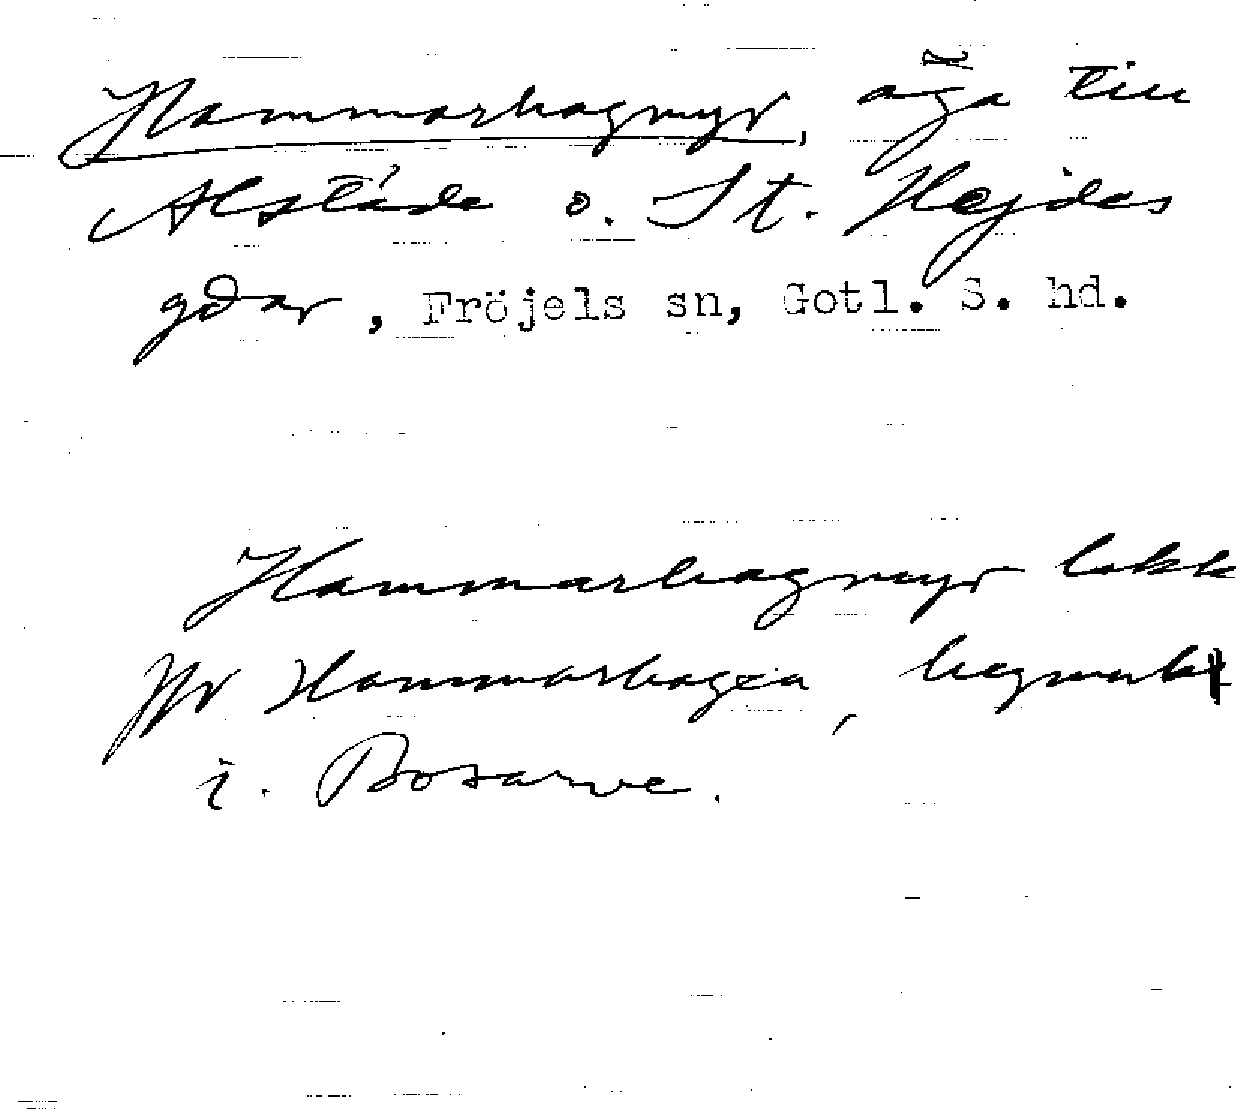 Hammarhagmyr, äga till
Alstäde o. St. Hejdes
gdar, Fröjels sn, Gotl. S. hd.
Hammarhagmyr
Hammarhagen,
i. Bosarve.